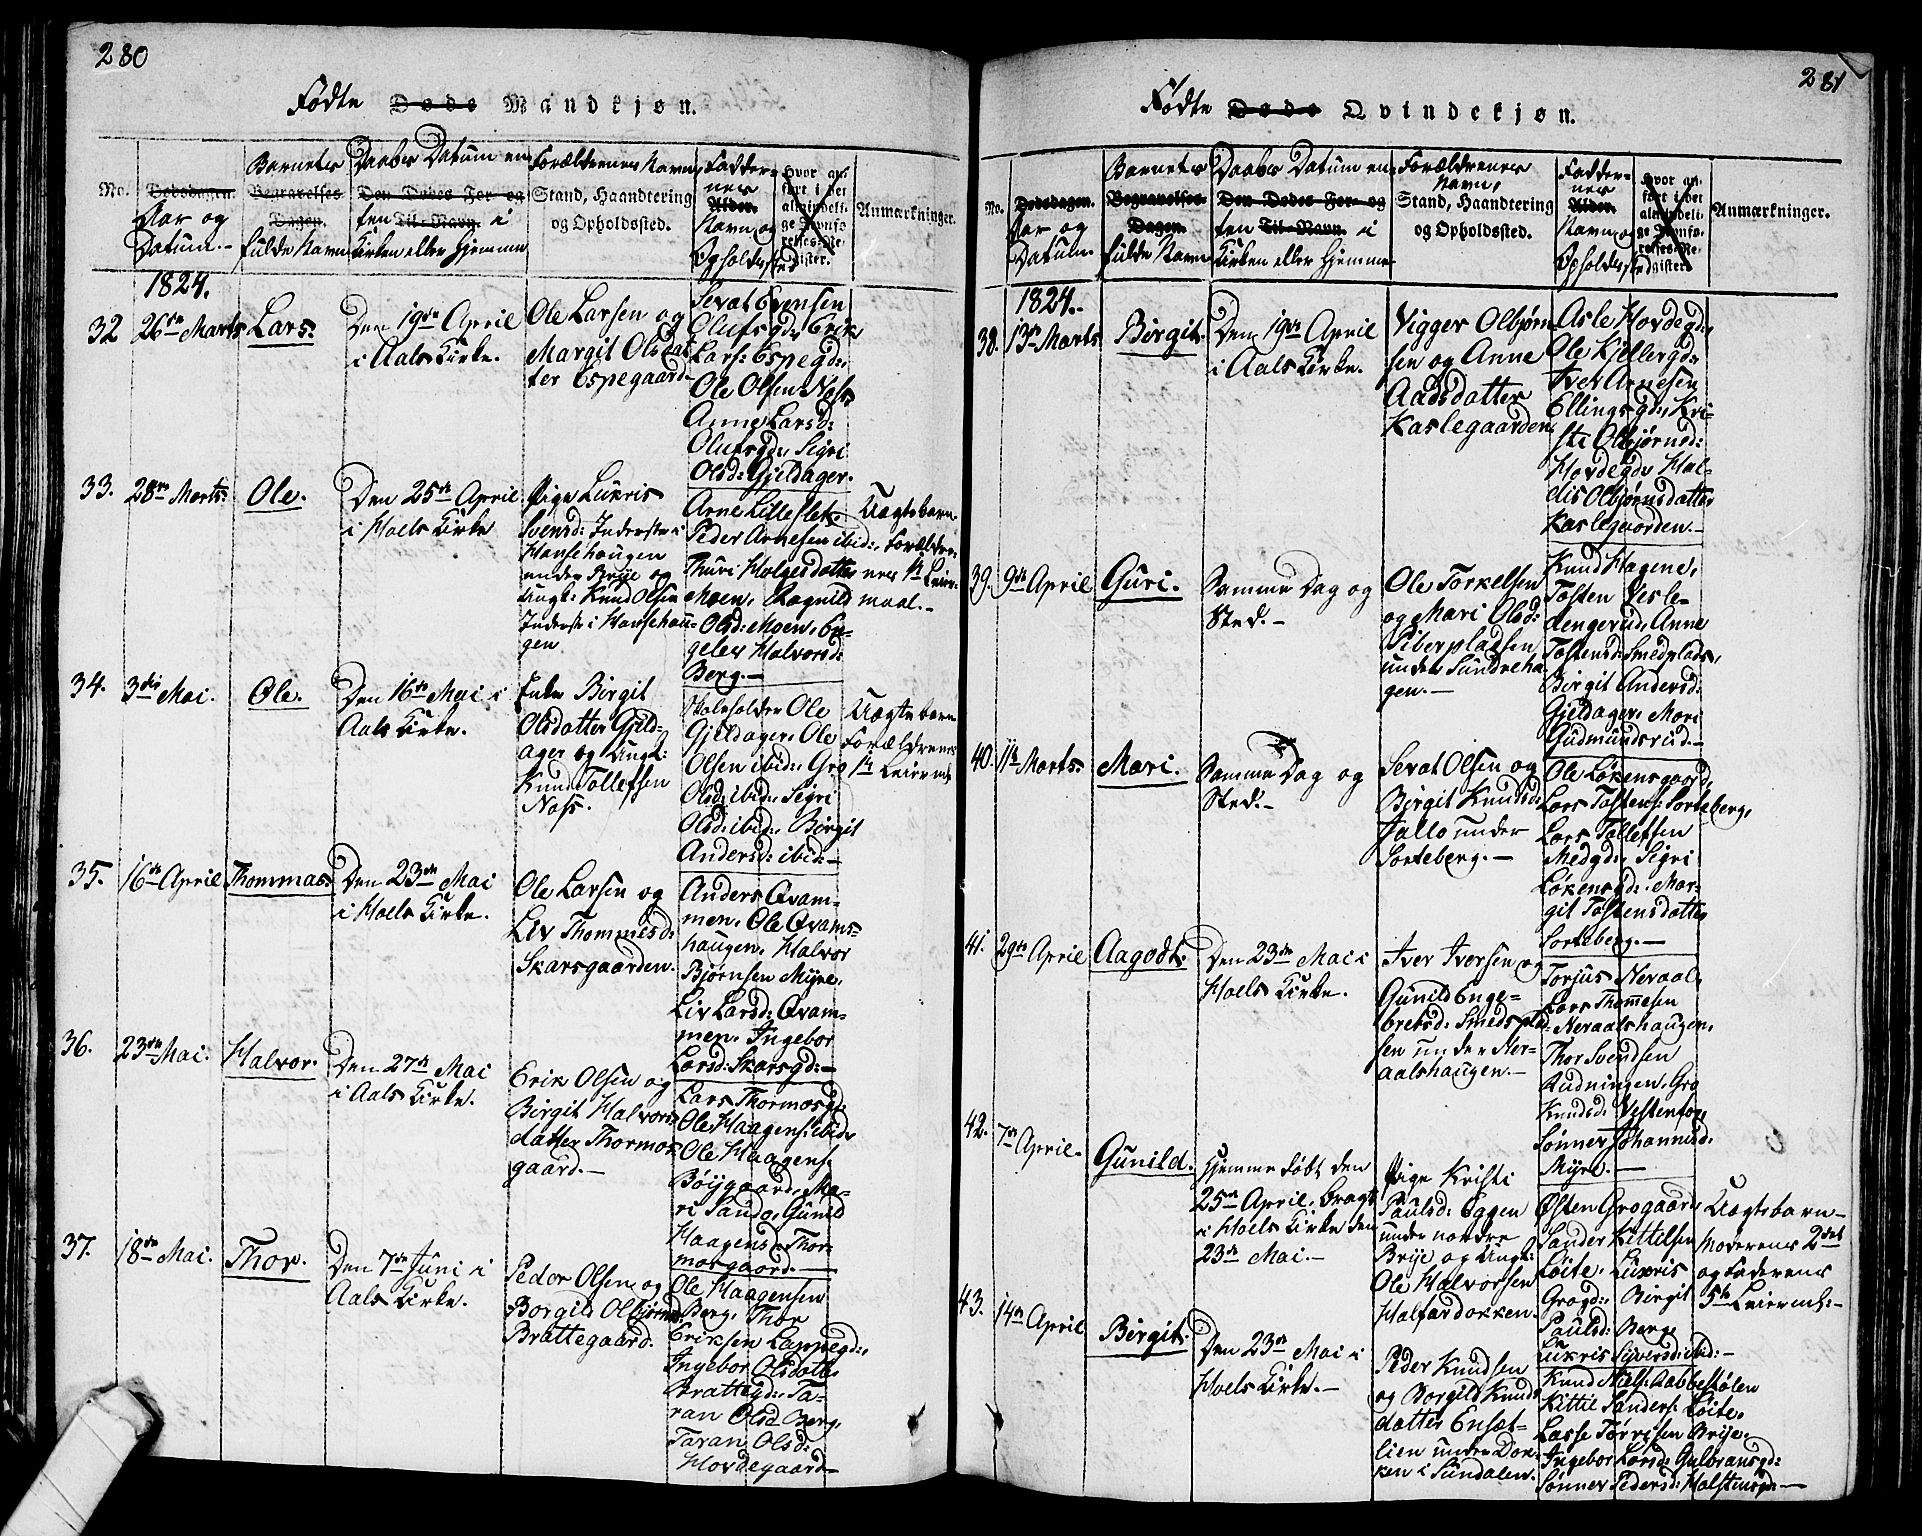 280
Fødte Døde Mandkjøn.
No.
Dødsdagen.
Aar og
Datum.-
Barnets
Begravelses
Dagen.
fulde Navn
Daabes Datum en
Den Dødes For- og
ten Til-Navn i
Kirken eller Hjemme
Forældrenes Navn,
Stand, Haandtering
og Opholdssted.
Fadder-
nes
Alder.
Navn og
Opholdssted
Hvor an-
ført i det
almindeli-
ge Jevnfø-
relses-Re-
gister.
Anmærkninger.
1824.
32
26de Marts
Lars.
Den 19de April
i Aals Kirke.
Ole Larsen og
Margit Olsdat
ter Espegaard
Sevat Evensen
Olufsgd:, Erik
Lars: Espegd:,
Ole Olsen Næss
Anne Larsd:
Olufsgd:, Sigri
Olsd: Gjeldager.
33.
28de Marts:
Ole.
Den 25de April
i Hoels Kirke
Pige Lukris
Svensd: Inderste i
Hansehaugen
under Brije og
Ungk: Knud Olsen
Inderst i Hansehau-
gen
Arne Lilleslek.
Peder Arnesen ibid:,
Thuri Holgesdatter
Moen, Ragnild
Olsd: Moen, En-
geler Halvorsd:
Berg.-
Uægtebarn.
Forældre-
nes 1st Leier-
maal.-
34.
3die Mai.
Ole.
Den 16de Mai i
Aals Kirke.
Enke Birgit
Olsdatter Gjeld-
ager og Ungk:
Knud Tollefsen
Næss.
Ole
Gjeldager, Ole
Olsen ibid:, Gro
Olsd: ibid:, Sigri
Olsd: ibid:, Birgit
Andersd: ibid:-
Uægtebarn
Forældrenes
1st Leierm
35.
16de April
Thommas.
Den 23de Mai
i Hoels Kirke.
Ole Larsen og
Liv Thommesd:
Skarsgaarden.
Anders Qvam-
men, Ole Qvams-
haugen, Halvor
Bjørnsen Myre,
Liv Larsd: Qvam-
men, Ingebor
Larsd: Skarsgd:-
36.
23de Mai.
Halvor.
Den 27de Mai
i Aals Kirke.
Erik Olsen og
Birgit Halvors
datter Thormos
gaard.-
Lars Thormosgd:
Ole Haagens: ibid:
Ole Haagens:
Bøygaard, Ma-
ri Sando, Gunild
Haagensd: Thor-
mosgaard.-
37.
18de Mai.
Thor.
Den 7de Juni i
Aals Kirke.
Peder Olsen og
Borgild Olbjørnsd
Brattegaard.
Ole Haagensen
Berg, Thor
Eriksen Lappegd:,
Ingebor Olsdatter
Brattegd:, Ta-
ran Olsd Berg,
Taran Olsd:
Hovdegaard-
281
Fødte Døde Qvindekjøn.
No.
Dødsdagen.
Aar og
Datum.
Barnets
Begravelses
Dagen.
fulde Navn
Daabes Datum en
Den Dødes For- og
ten Til-Navn i
Kirken eller Hjemme
Forældrenes
Navn,
Stand, Haandtering
og Opholdssted.
Fadder-
nes
Alder.
Navn og
Opholdssted
Hvor an-
ført i det
almindeli-
ge Jevnfø-
relses-Re-
gister.
Anmærkninger.
1824.
38.
13de Marts
Birgit.
Den 19de April
i Aals Kirke.
Vigger Olbjørn
sen og Anne
Aadsdatter
Kaslegaarden.
Asle Hovdegd:,
Ole Kjellergd:
Iver Arnesen
Ellingsgd:, Kri-
sti Olbjørnsd:
Hovdegd:, Hal-
dis Olbjørnsdatter
Kaslegaarden.-
39.
9de April
Guri.
Samme Dag og
Sted.-
Ole Torkelsen
og Mari Olsd:
Piberpladsen
under Sundreha
gen.-
Knud Hagene,
Tosten Vesle-
dengerud, Anne
Tostensd: Smedplads,
Birgit Andersd:
Gjeldager, Mari
Gudmundsrud.-
40.
11te Marts:
Mari.
Samme Dag og
Sted.-
Sevat Olsen og
Birgit Knudsd:
Jallo under
Sorteberg.-
Ole Løkensgaard,
Lars Tostens: Sorteberg,
Lars Tollefsen
Medgd:, Sigri
Løkensgd:, Mar-
git Tostensdatter
Sorteberg.-
41.
29de April
Aagodt.
Den 23de Mai i
Hoels Kirke.
Iver Iversen og
Gunild Enge-
bretsd: Smedspla
sen under Ner-
aalshaugen.-
Torjus Neraal,
Lars Thomesen
Neraalshaugen,
Thor Svendsen
Rudningen, Gro
Knudsd: Vestenfor,
Sønner Johannesd:
Myre.-
42.
7de April.
Gunild.
Hjemme døbt den
25de April, bragt
i Hoels Kirke den
23de Mai.-
Pige Kristi
Paulsd: Eggen
under nordre
Brije og Ungk:
Ole Halvorsen
Halfardokken.
Østen Grogaard
Sander Kittilsen
Løite, Lukris
Grogd:, Birgit
Paulsd: Berg
Lukris Siversd: ibid:-
Uægtebarn-
Moderens 2det
og Faderens
5te Leierm:-
43.
14de April
Birgit.
Den 23de Mai i
Hoels Kirke.-
Peder Knudsen
og Borgild Knuds
datter Ensæt-
lien under Dok-
ken i Sundalen.
Knud Niels: Aabbestølen
Kittil Sanders: Løite,
Lasse Tørrisen Brije,
Ingebor Larsd: Gulbransgd:
Sønner Pedersd: Halstensgd:-